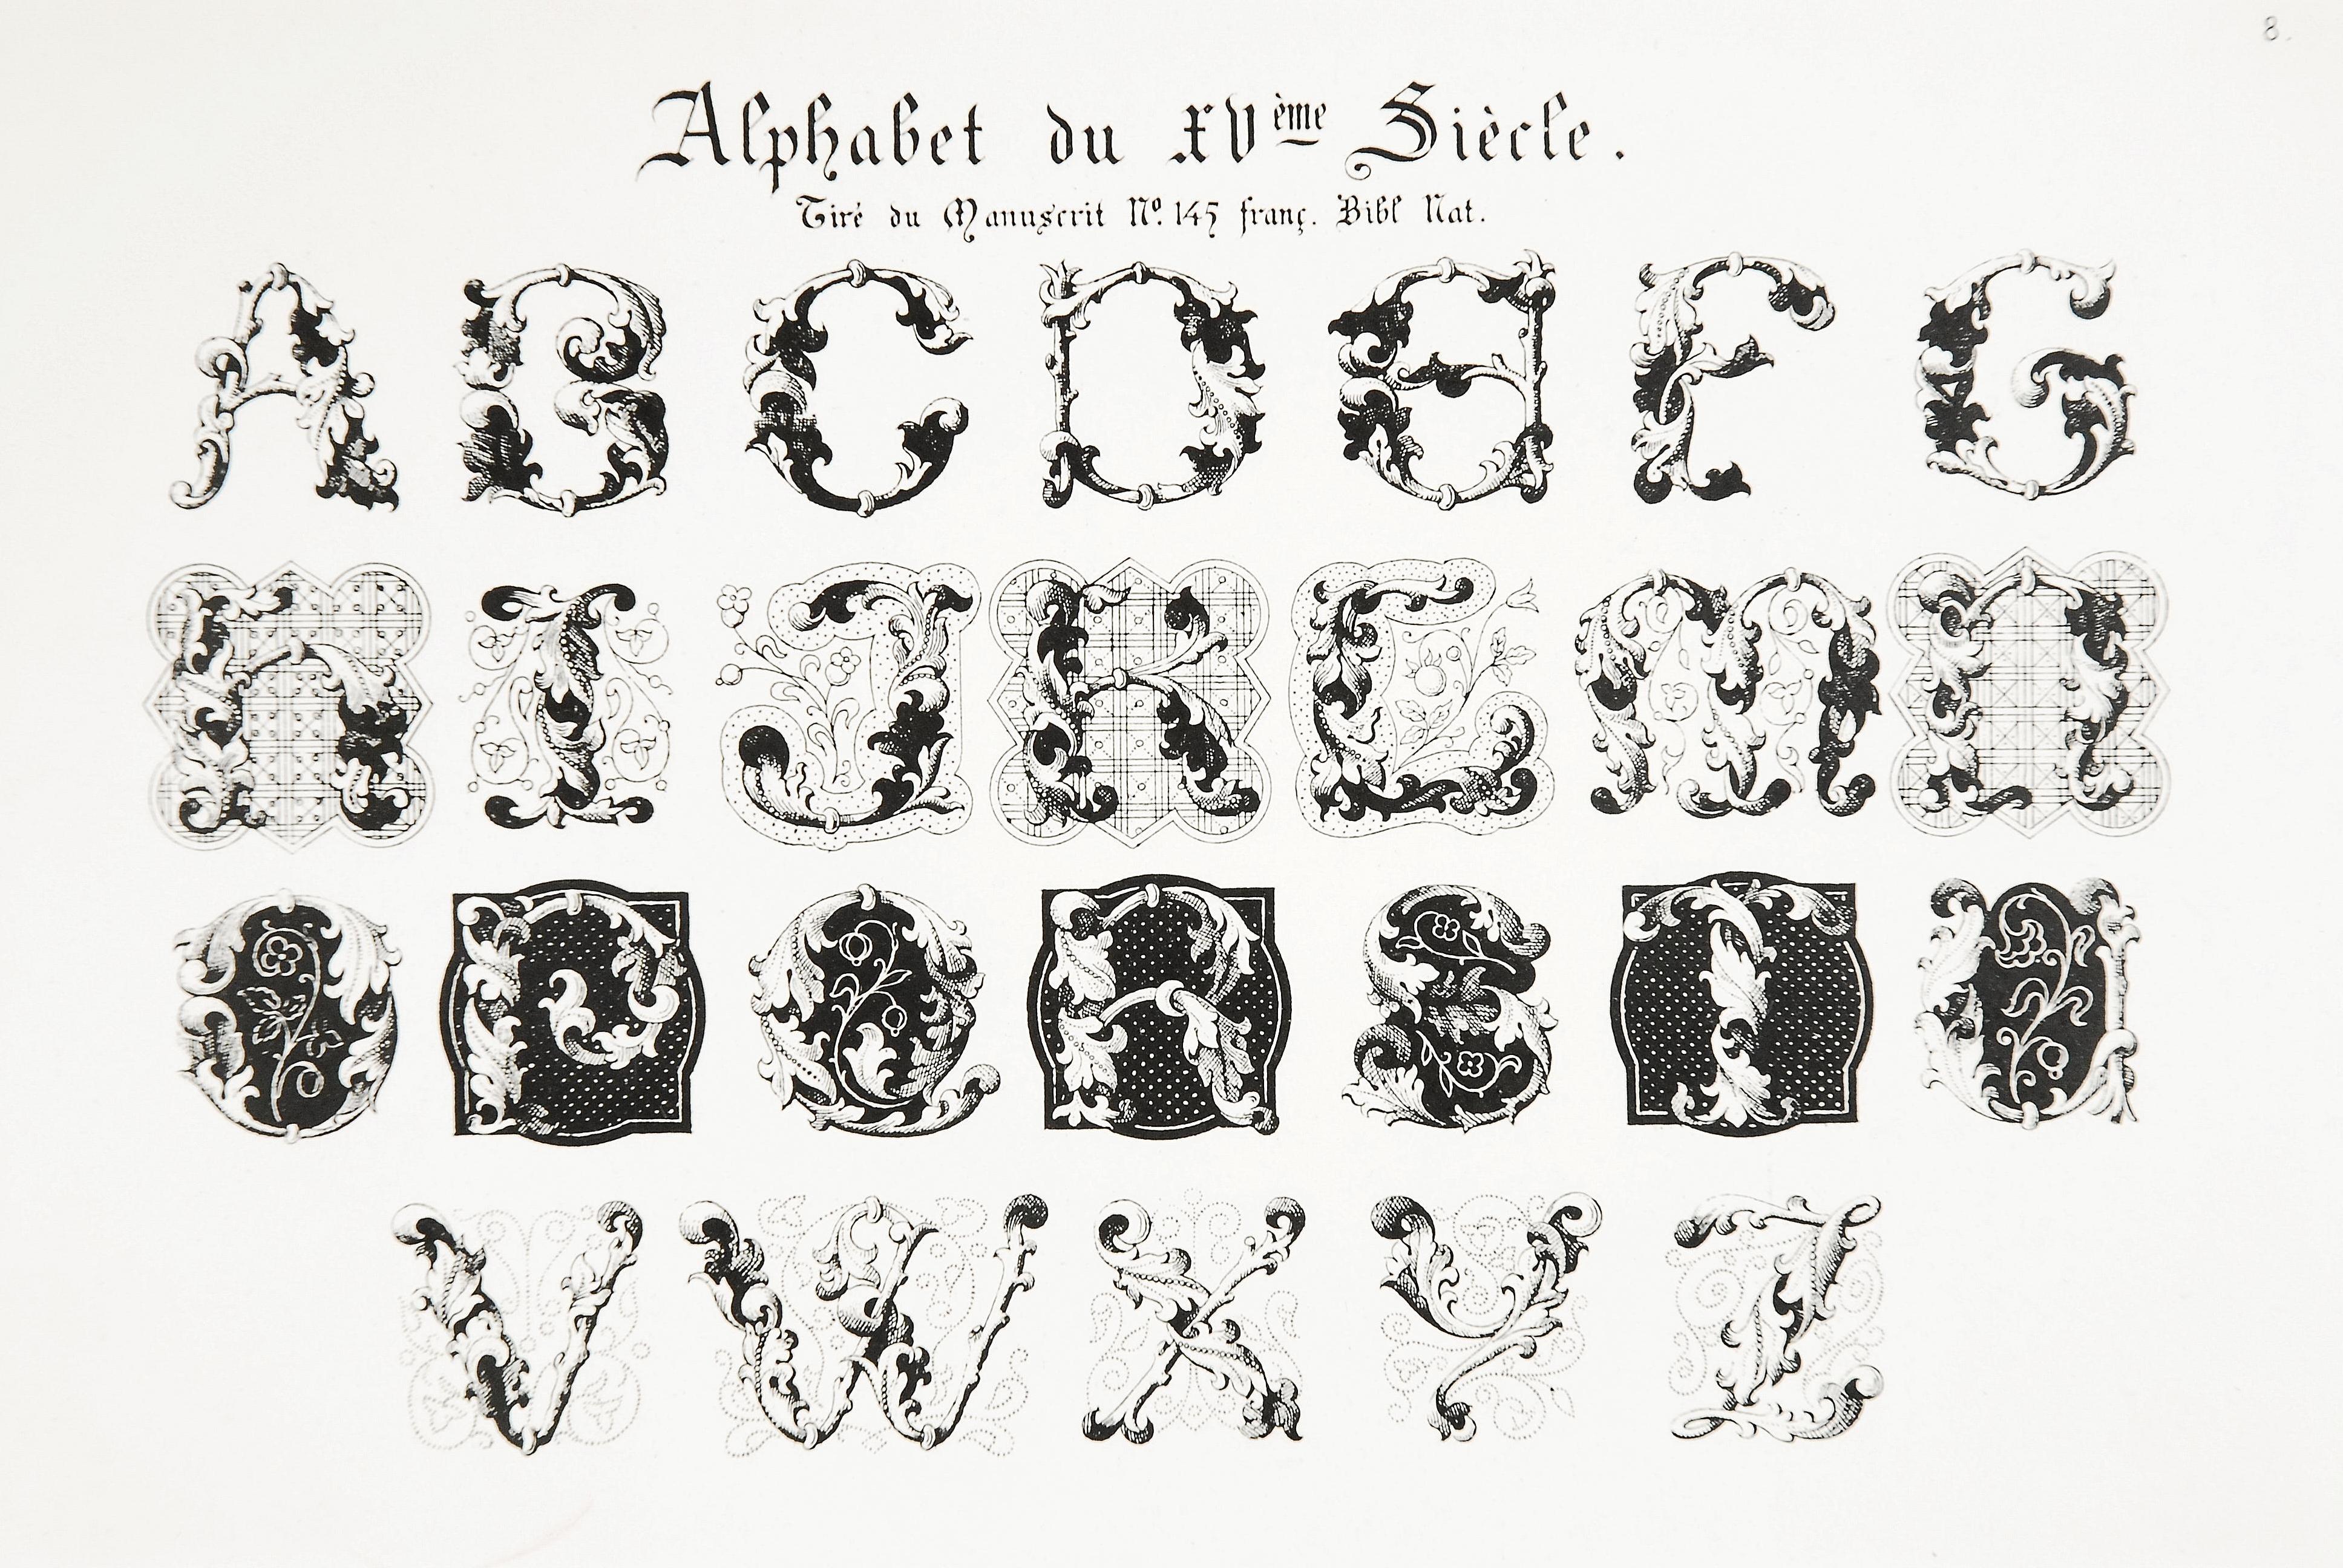 8.
Alphabet du XVème Siècle.
Tiré du Manuscrit No. 145 franç. Bibl Nat.
A B C D E F G
H I J K L M N
O P Q R S T U
V W X Y Z